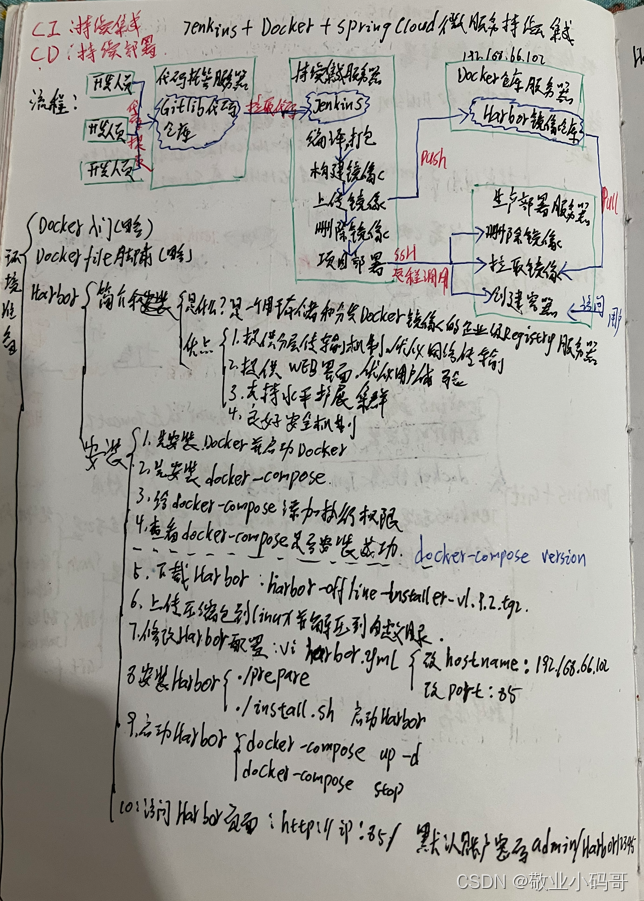 CI:持续集成
Jenkins+Docker+springCloud微服务持续集成
CD:持续部署
192.168.66.102
流程:
开发人员
开发人员
开发人员
代码提交
代码托管服务器
Gitlib代码
仓库
拉取代码
持续集成服务器
Jenkins
编译打包
构建镜像
上传镜像
删除镜像
项目部署
Docker仓库服务器
Harbor镜像仓库
push
Pull
SSH
远程调用
生产部署服务器
删除镜像
拉取镜像
创建容器
访问 用户
环境准备
Docker入门(略)
Dockerfile脚本(略)
Harbor
简介和安装
是什么?是一个用于存储和分发Docker镜像的企业级Registry服务器
优点
1.提供分层传输机制,优化网络传输
2.提供WEB界面,优化用户体验
3.支持水平扩展集群
4.良好安全机制
安装
1.先安装Docker并启动Docker
2.先安装docker-compose
3.给docker-compose添加执行权限
4.查看docker-compose是否安装成功. docker-compose version
5.下载Harbor:harbor-offline-installer-v1.9.2.tgz.
6.上传压缩包到linux并解压到
7.修改Harbor配置:vi harbor.yml
改hostname:192.168.66.102
改port:85
8.安装Harbor
./prepare
./install.sh 启动Harbor
9.启动Harbor
docker-compose up -d
docker-compose stop
10:访问Harbor页面:http://ip:85/ 默认账户密码admin/Harbor12345
CSDN @敬业小码哥